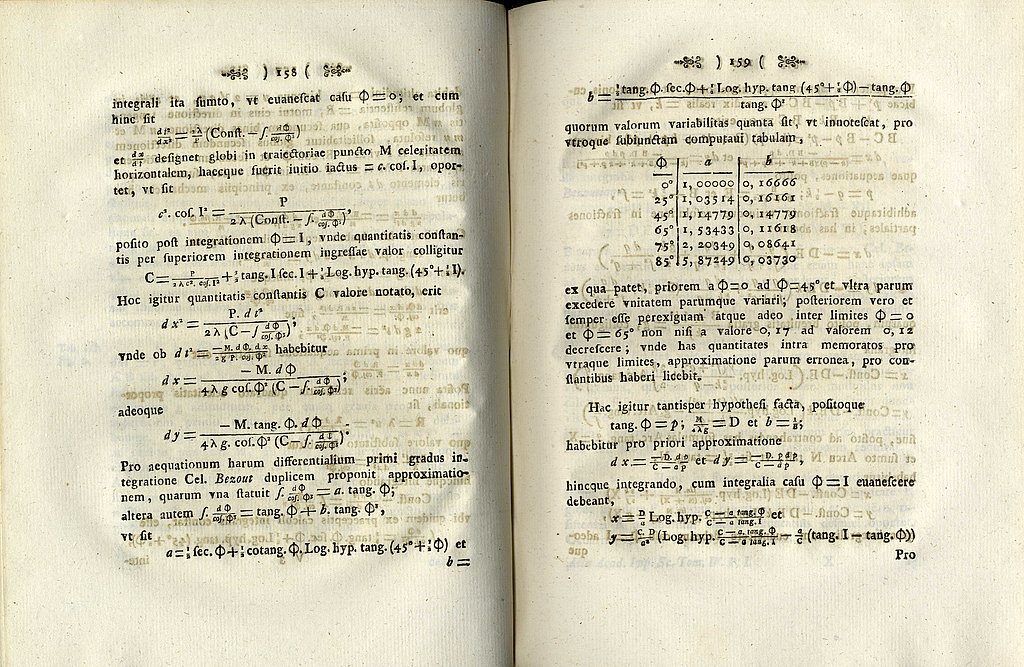 ) 158 (
integrali ita sumto, vt euanescat casu Φ=0; et cum
hinc sit
dt²/dx² = 2λ/P (Const. − ∫. dΦ/cos. Φ³)
et dx/dt designet globi in traiectoriae puncto M celeritatem
horizontalem, haecque fuerit initio iactus = c. cos. I, opor-
tet, vt sit
c². cos. I² = P / 2λ(Const. − ∫. dΦ/cos. Φ³),
posito post integrationem Φ=I, vnde quantitatis constan-
tis per superiorem integrationem ingressae valor colligitur
C = P/2λc². cos. I² + ½ tang. I sec. I + ½ Log. hyp. tang. (45° + ½I).
Hoc igitur quantitatis constantis C valore notato, erit
dx² = P. dt² / 2λ(C − ∫ dΦ/cos. Φ³),
vnde ob dt² = −M. dΦ. dx / 2g P. cos. Φ² habebitur
dx = −M. dΦ / 4λg cos. Φ² (C − ∫. dΦ/cos. Φ³);
adeoque
dy = −M. tang. Φ. dΦ / 4λg. cos. Φ² (C − ∫. dΦ/cos. Φ³).
Pro aequationum harum differentialium primi gradus in-
tegratione Cel. Bezout duplicem proponit approximatio-
nem, quarum vna statuit ∫. dΦ/cos. Φ³ = a. tang. Φ;
altera autem ∫. dΦ/cos. Φ³ = tang. Φ + b. tang. Φ²,
vt sit
a = ½ sec. Φ + ½ cotang. Φ. Log. hyp. tang. (45° + ½Φ) et
b =
) 159 (
b = ½ tang. Φ. sec. Φ + ½ Log. hyp. tang (45° + ½Φ) − tang. Φ / tang. Φ²
quorum valorum variabilitas quanta sit, vt innotescat, pro
vtroque subiunctam computaui tabulam,
Φ | a | b
0° | 1, 00000 | 0, 16666
25° | 1, 03514 | 0, 16161
45° | 1, 14779 | 0, 14779
65° | 1, 53433 | 0, 11618
75° | 2, 20349 | 0, 08641
85° | 5, 87249 | 0, 03730
ex qua patet, priorem a Φ=0 ad Φ=45° et vltra parum
excedere vnitatem parumque variari; posteriorem vero et
semper esse perexiguam atque adeo inter limites Φ=0
et Φ=65° non nisi a valore 0, 17 ad valorem 0, 12
decrescere; vnde has quantitates intra memoratos pro
vtraque limites, approximatione parum erronea, pro con-
stantibus haberi licebit.
Hac igitur tantisper hypothesi facta, positoque
tang. Φ = p; M/4λg = D et b = 1/B;
habebitur pro priori approximatione
dx = −D. dp / C − ap et dy = −D. p dp / C − ap,
hincque integrando, cum integralia casu Φ=I euanescere
debeant,
x = D/a Log. hyp. C − a tang. Φ / C − a tang. I et
y = C. D/a² (Log. hyp. C − a. tang. Φ / C − a tang. I − a/C (tang. I − tang. Φ))
Pro